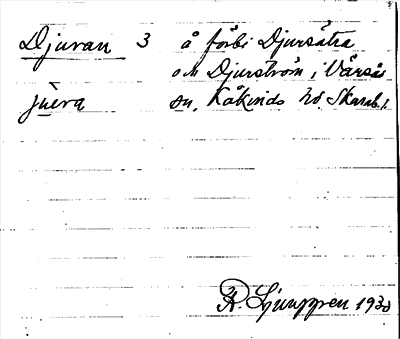 Djuran 3 å förbi Djursätra
och Djurström i Värsås
juèra sn, Kåkinds hd Skarab.l.
R. Ljunggren 1930